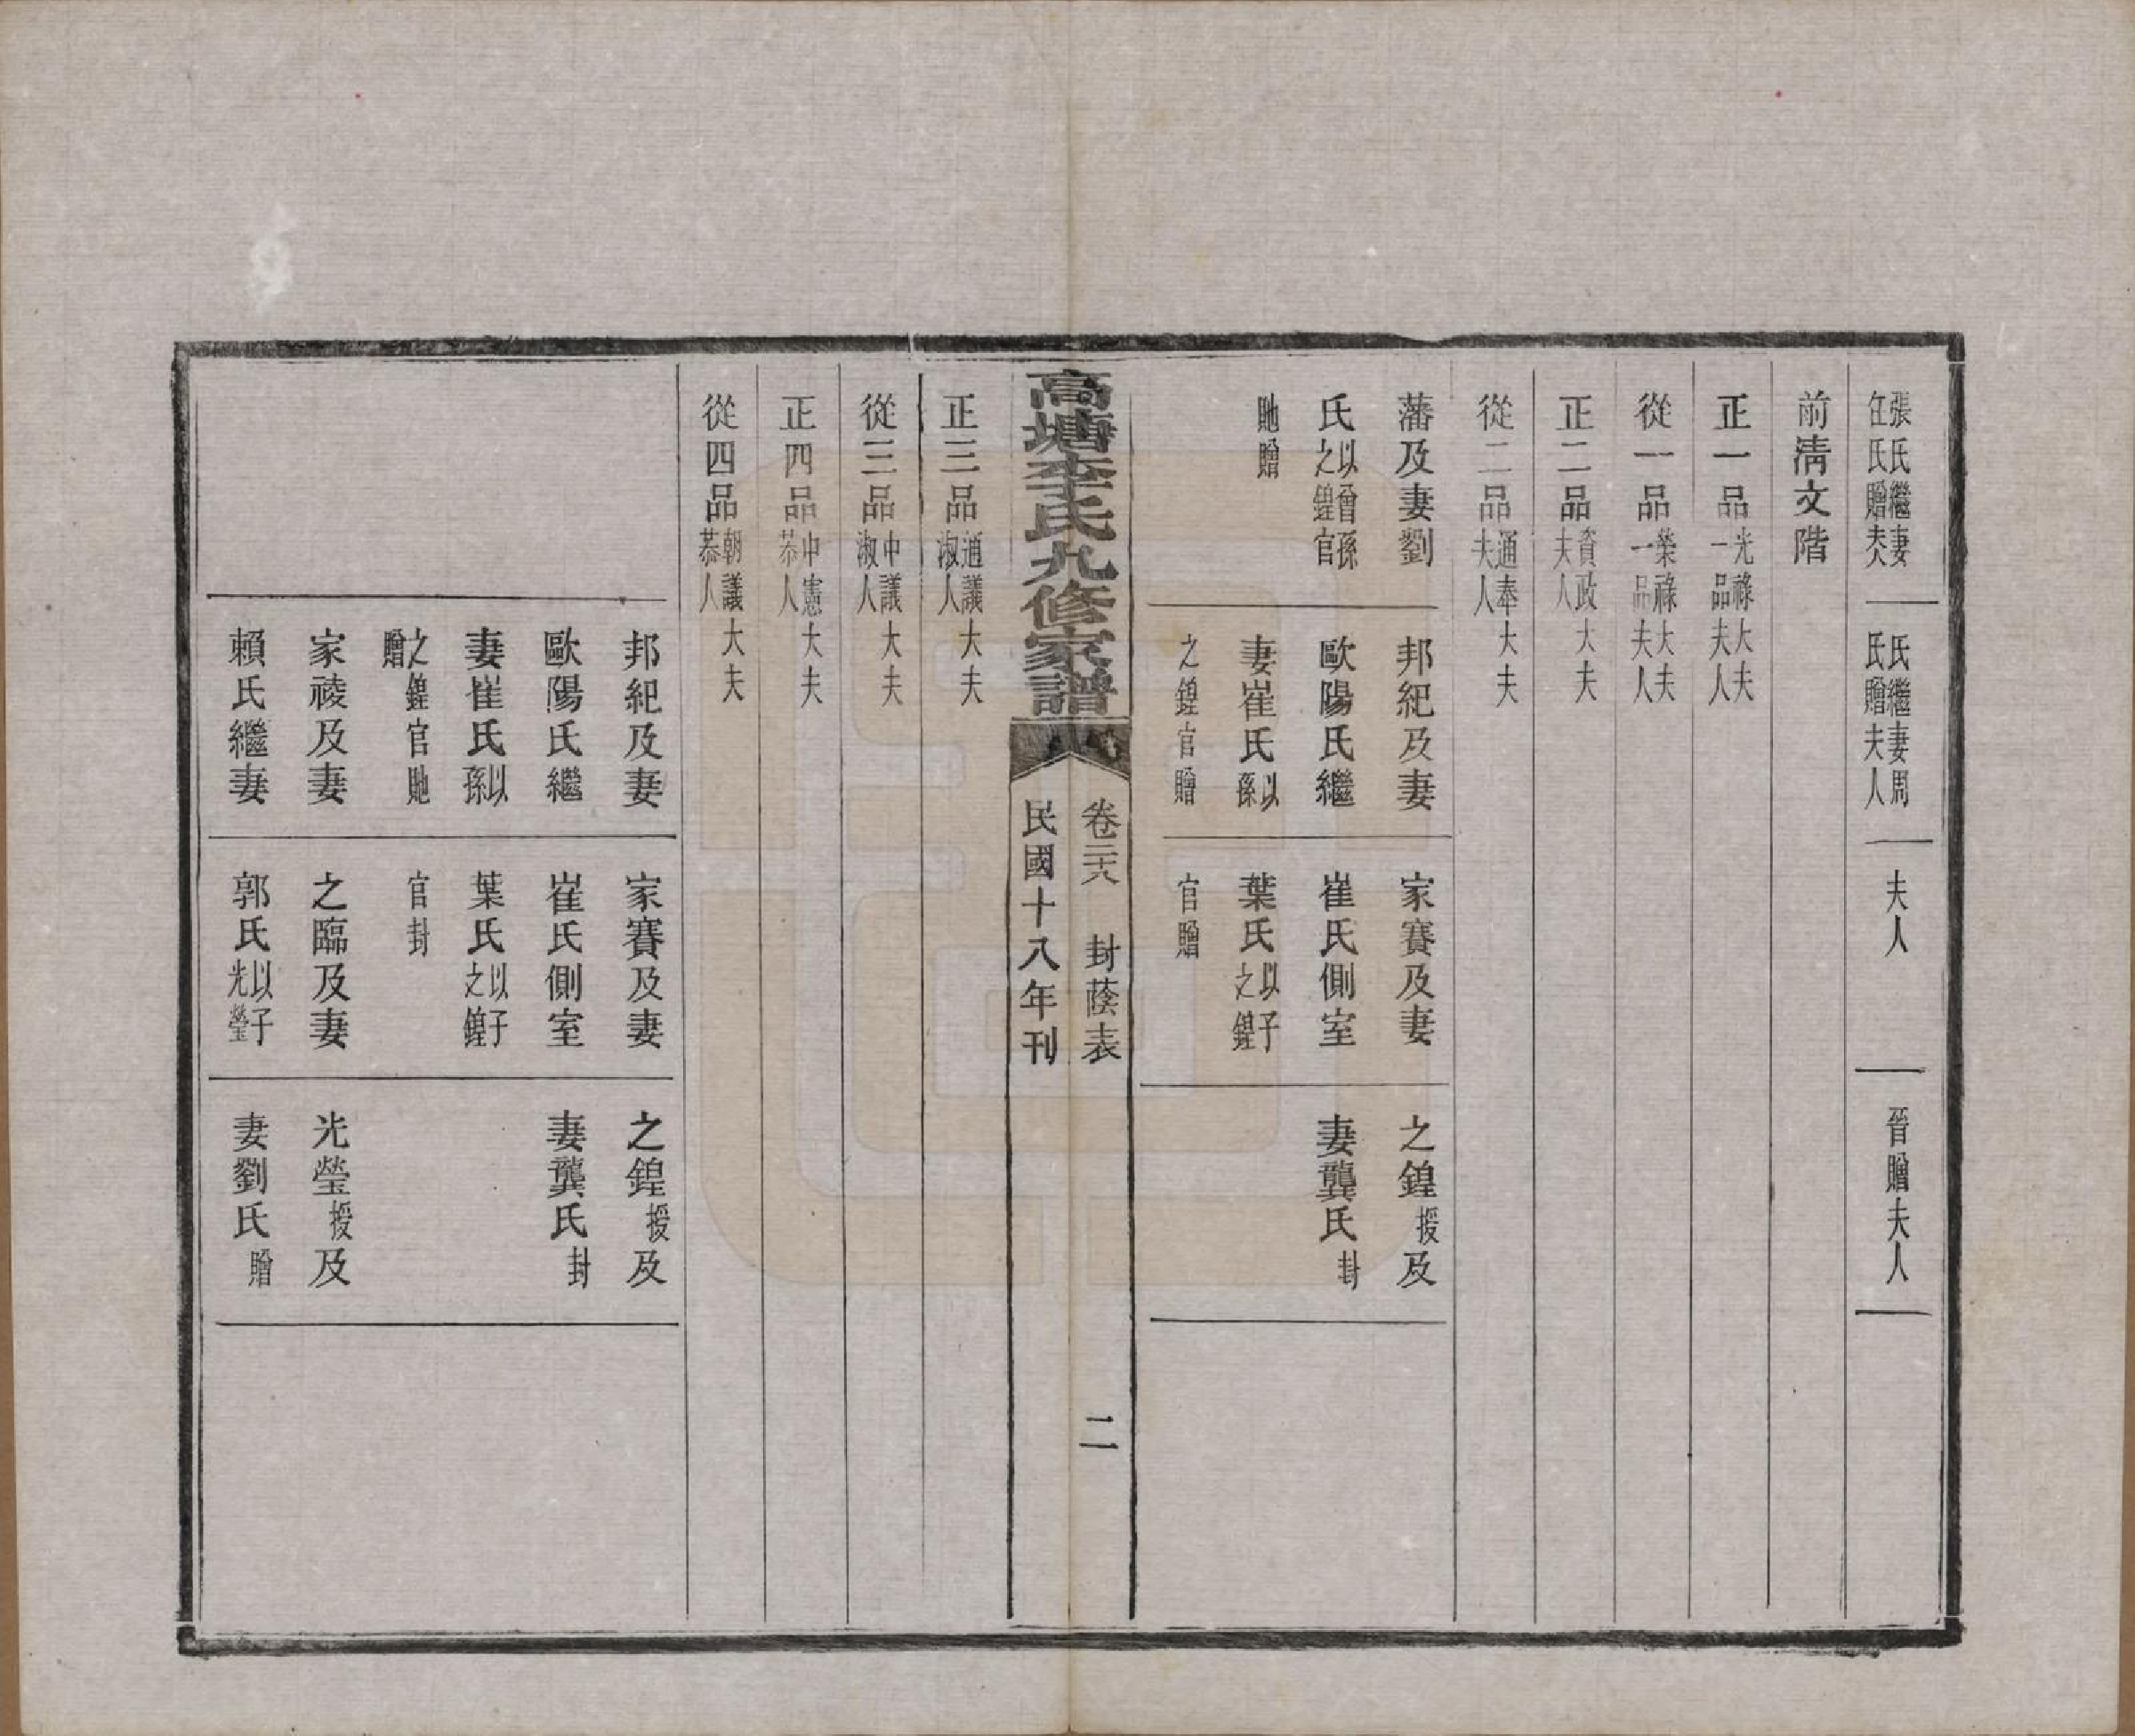 張氏繼妻
任氏贈夫人
氏繼妻周
氏贈夫人
夫人
晉贈夫人
前清文階
正一品光祿大夫
一品夫人
從一品榮祿大夫
一品夫人
正二品資政大夫
夫人
從二品通奉大夫
夫人
藩及妻劉
氏以曾孫
之鍠官
貤贈
邦紀及妻
歐陽氏繼
妻崔氏以孫
之鍠官贈
家賽及妻
崔氏側室
葉氏以子
之鍠
官贈
之鍠授及
妻龔氏封
高塘李氏九修家譜
卷二十八 封蔭表 二
民國十八年刊
正三品通議大夫
淑人
從三品中議大夫
淑人
正四品中憲大夫
恭人
從四品朝議大夫
恭人
邦紀及妻
歐陽氏繼
妻崔氏以孫
之鍠官貤
贈
家祾及妻
賴氏繼妻
家賽及妻
崔氏側室
葉氏以子
之鍠
官封
之臨及妻
郭氏以子
光瑩
之鍠授及
妻龔氏封
光瑩授及
妻劉氏贈